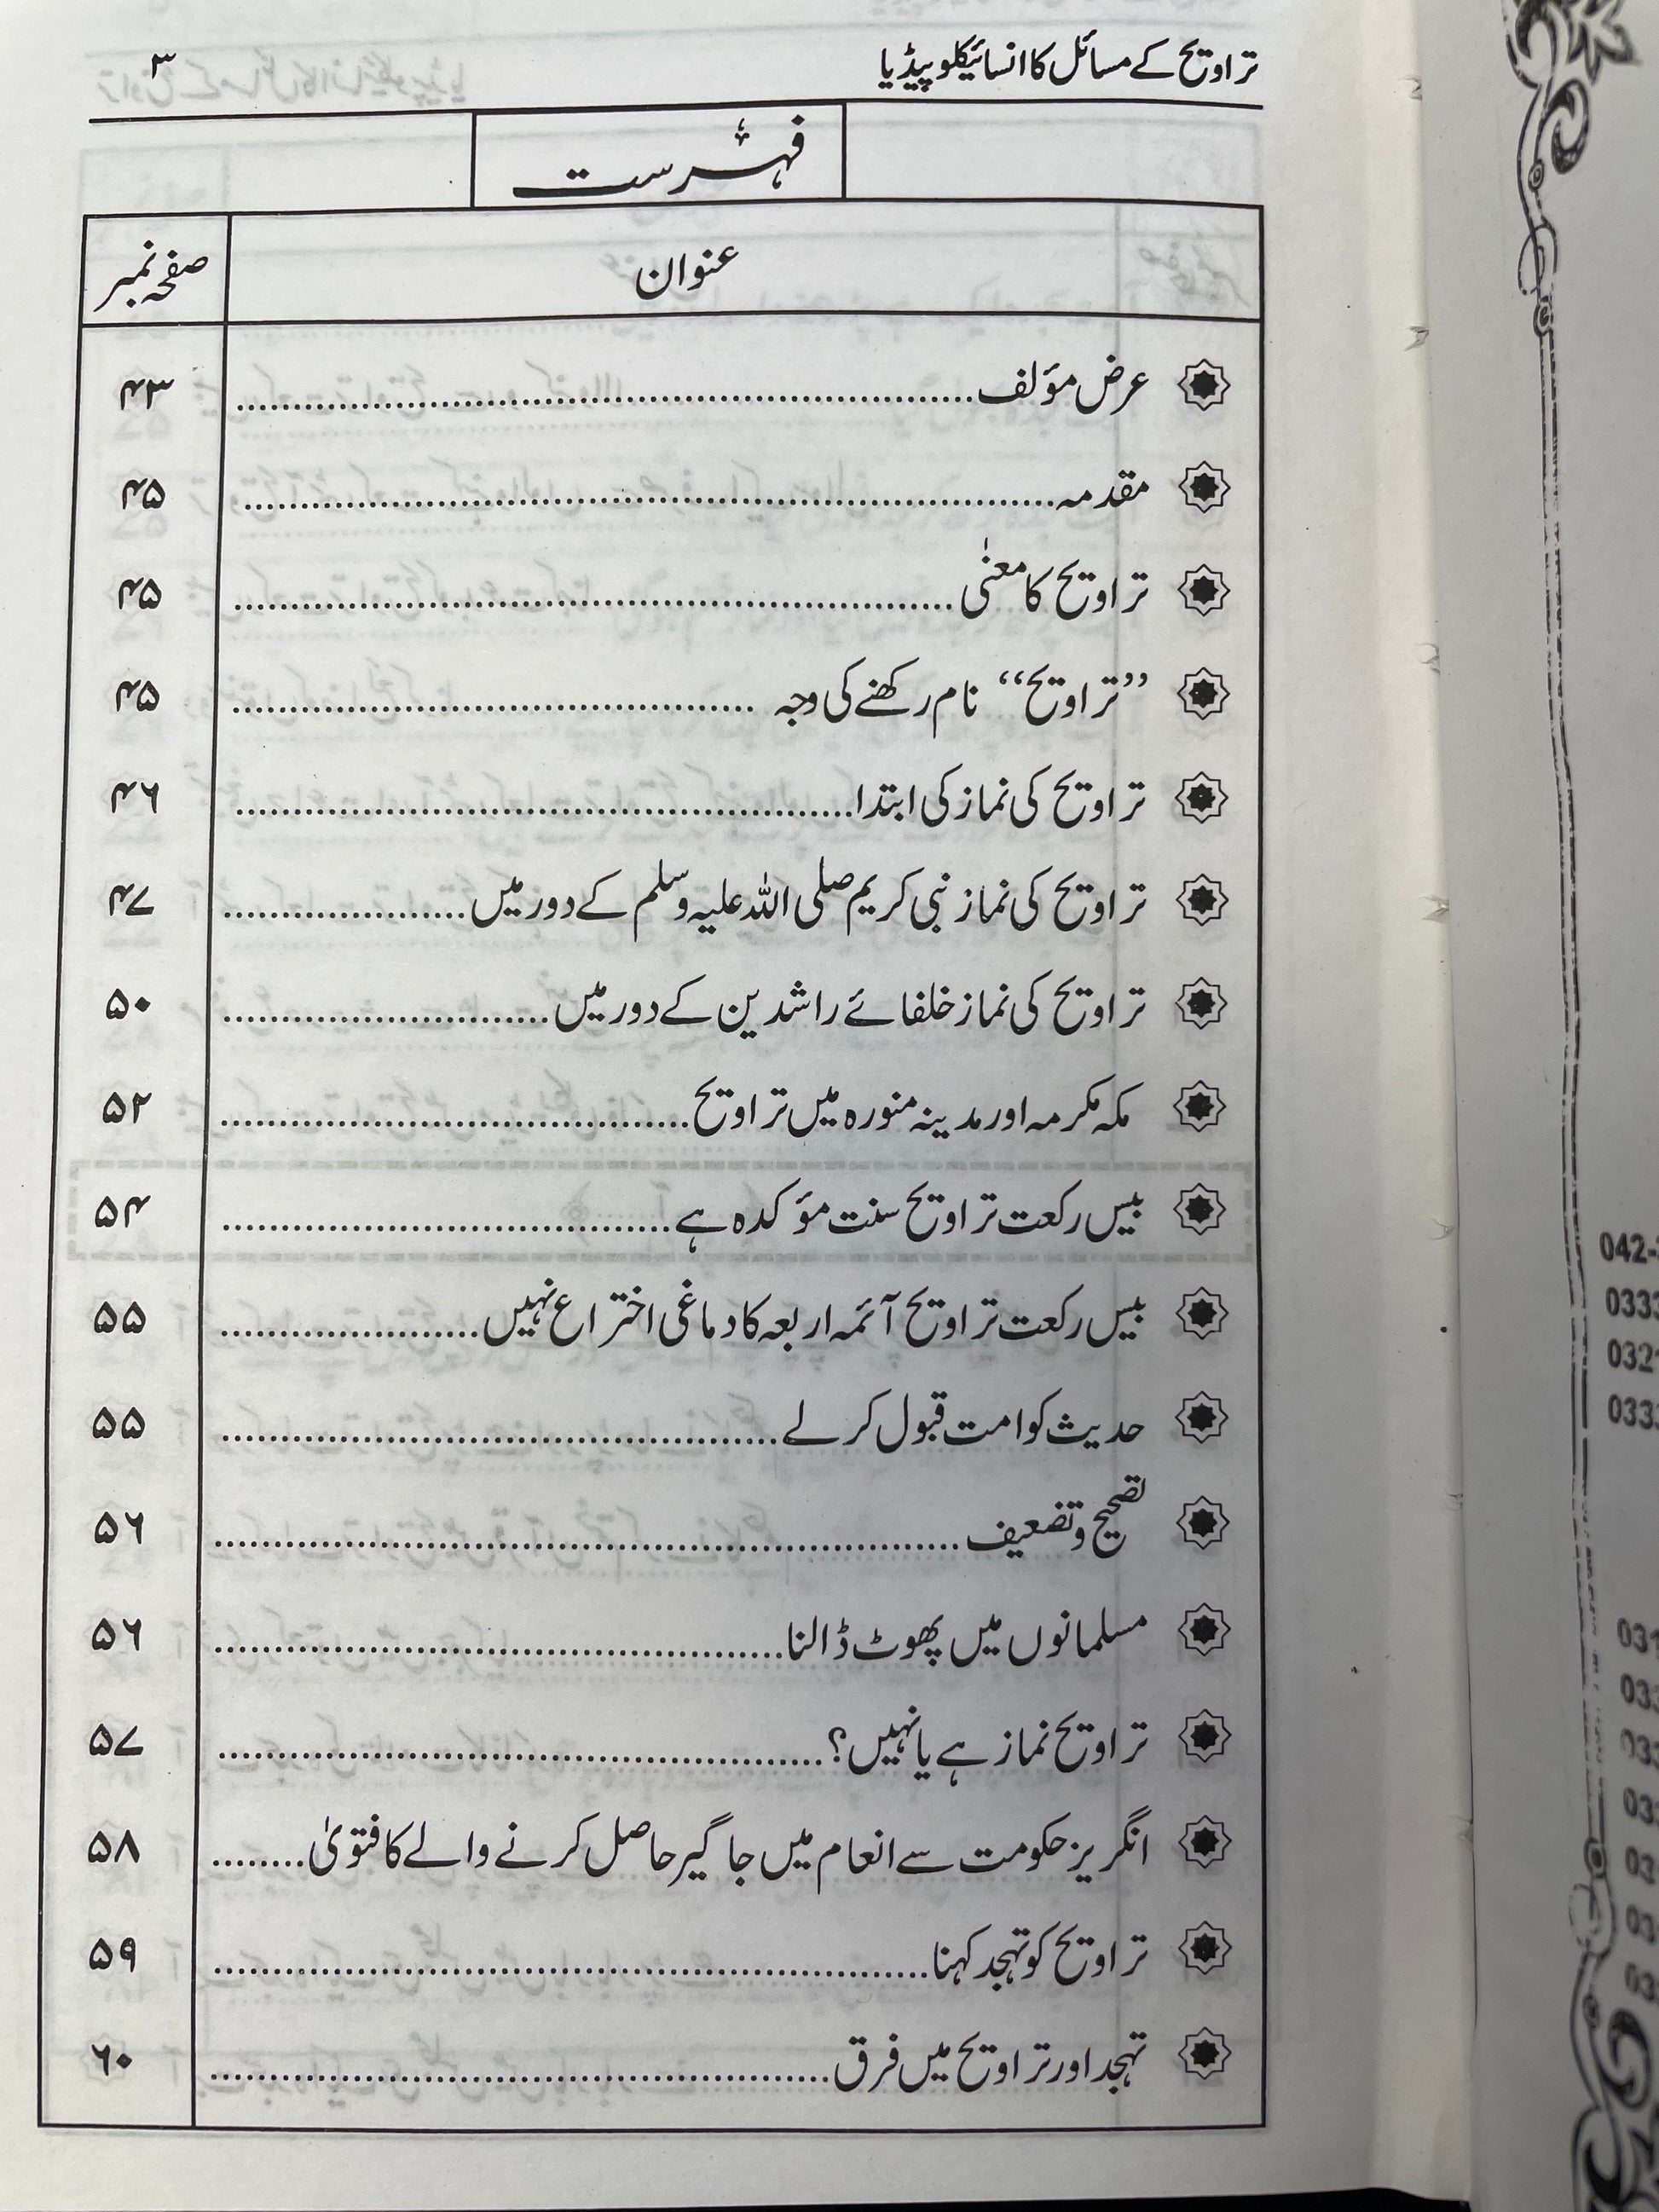 تراویح کے مسائل کا انسائیکلوپیڈیا ۳
فہرست
عنوان صفحہ نمبر
عرض مؤلف ۴۳
مقدمہ ۴۵
تراویح کا معنٰی ۴۵
”تراویح“ نام رکھنے کی وجہ ۴۵
تراویح کی نماز کی ابتدا ۴۶
تراویح کی نماز نبی کریم صلی اللہ علیہ وسلم کے دور میں ۴۷
تراویح کی نماز خلفائے راشدین کے دور میں ۵۰
مکہ مکرمہ اور مدینہ منورہ میں تراویح ۵۲
بیس رکعت تراویح سنت مؤکدہ ہے ۵۴
بیس رکعت تراویح آئمہ اربعہ کا دماغی اختراع نہیں ۵۵
حدیث کو امت قبول کر لے ۵۵
تصحیح و تضعیف ۵۶
مسلمانوں میں پھوٹ ڈالنا ۵۶
تراویح نماز ہے یا نہیں؟ ۵۷
انگریز حکومت سے انعام میں جاگیر حاصل کرنے والے کا فتویٰ ۵۸
تراویح کو تہجد کہنا ۵۹
تہجد اور تراویح میں فرق ۶۰